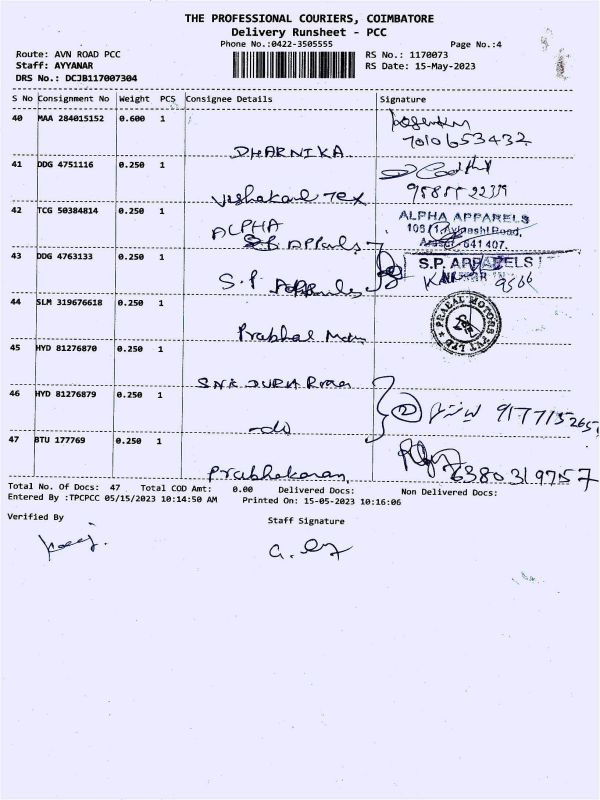 THE PROFESSIONAL COURIERS, COIMBATORE
Delivery Runsheet - PCC
Phone No.:0422-3505555 Page No.:4
Route: AVN ROAD PCC RS No.: 1170073
Staff: AYYANAR RS Date: 15-May-2023
DRS No.: DCJB117007304
S No Consignment No Weight PCS Consignee Details Signature
40 MAA 284015152 0.600 1
DHARNIKA 7010653432
41 DDG 4751116 0.250 1
Tex
42 TCG 50384814 0.250 1 ALPHA APPARELS
ALPHA 108/1, Avinashi Road,
641 407.
43 DDG 4763133 0.250 1 S.P. APPARELS
S.P Apparels 9566
44 SLM 319676618 0.250 1 PRABAL MOTORS PVT LTD
Prabhal
45 HYD 81276870 0.250 1
46 HYD 81276879 0.250 1
-do
47 BTU 177769 0.250 1
Prabhakaran, 6380319757
Total No. Of Docs: 47 Total COD Amt: 0.00 Delivered Docs: Non Delivered Docs:
Entered By :TPCPCC 05/15/2023 10:14:50 AM Printed On: 15-05-2023 10:16:06
Verified By Staff Signature